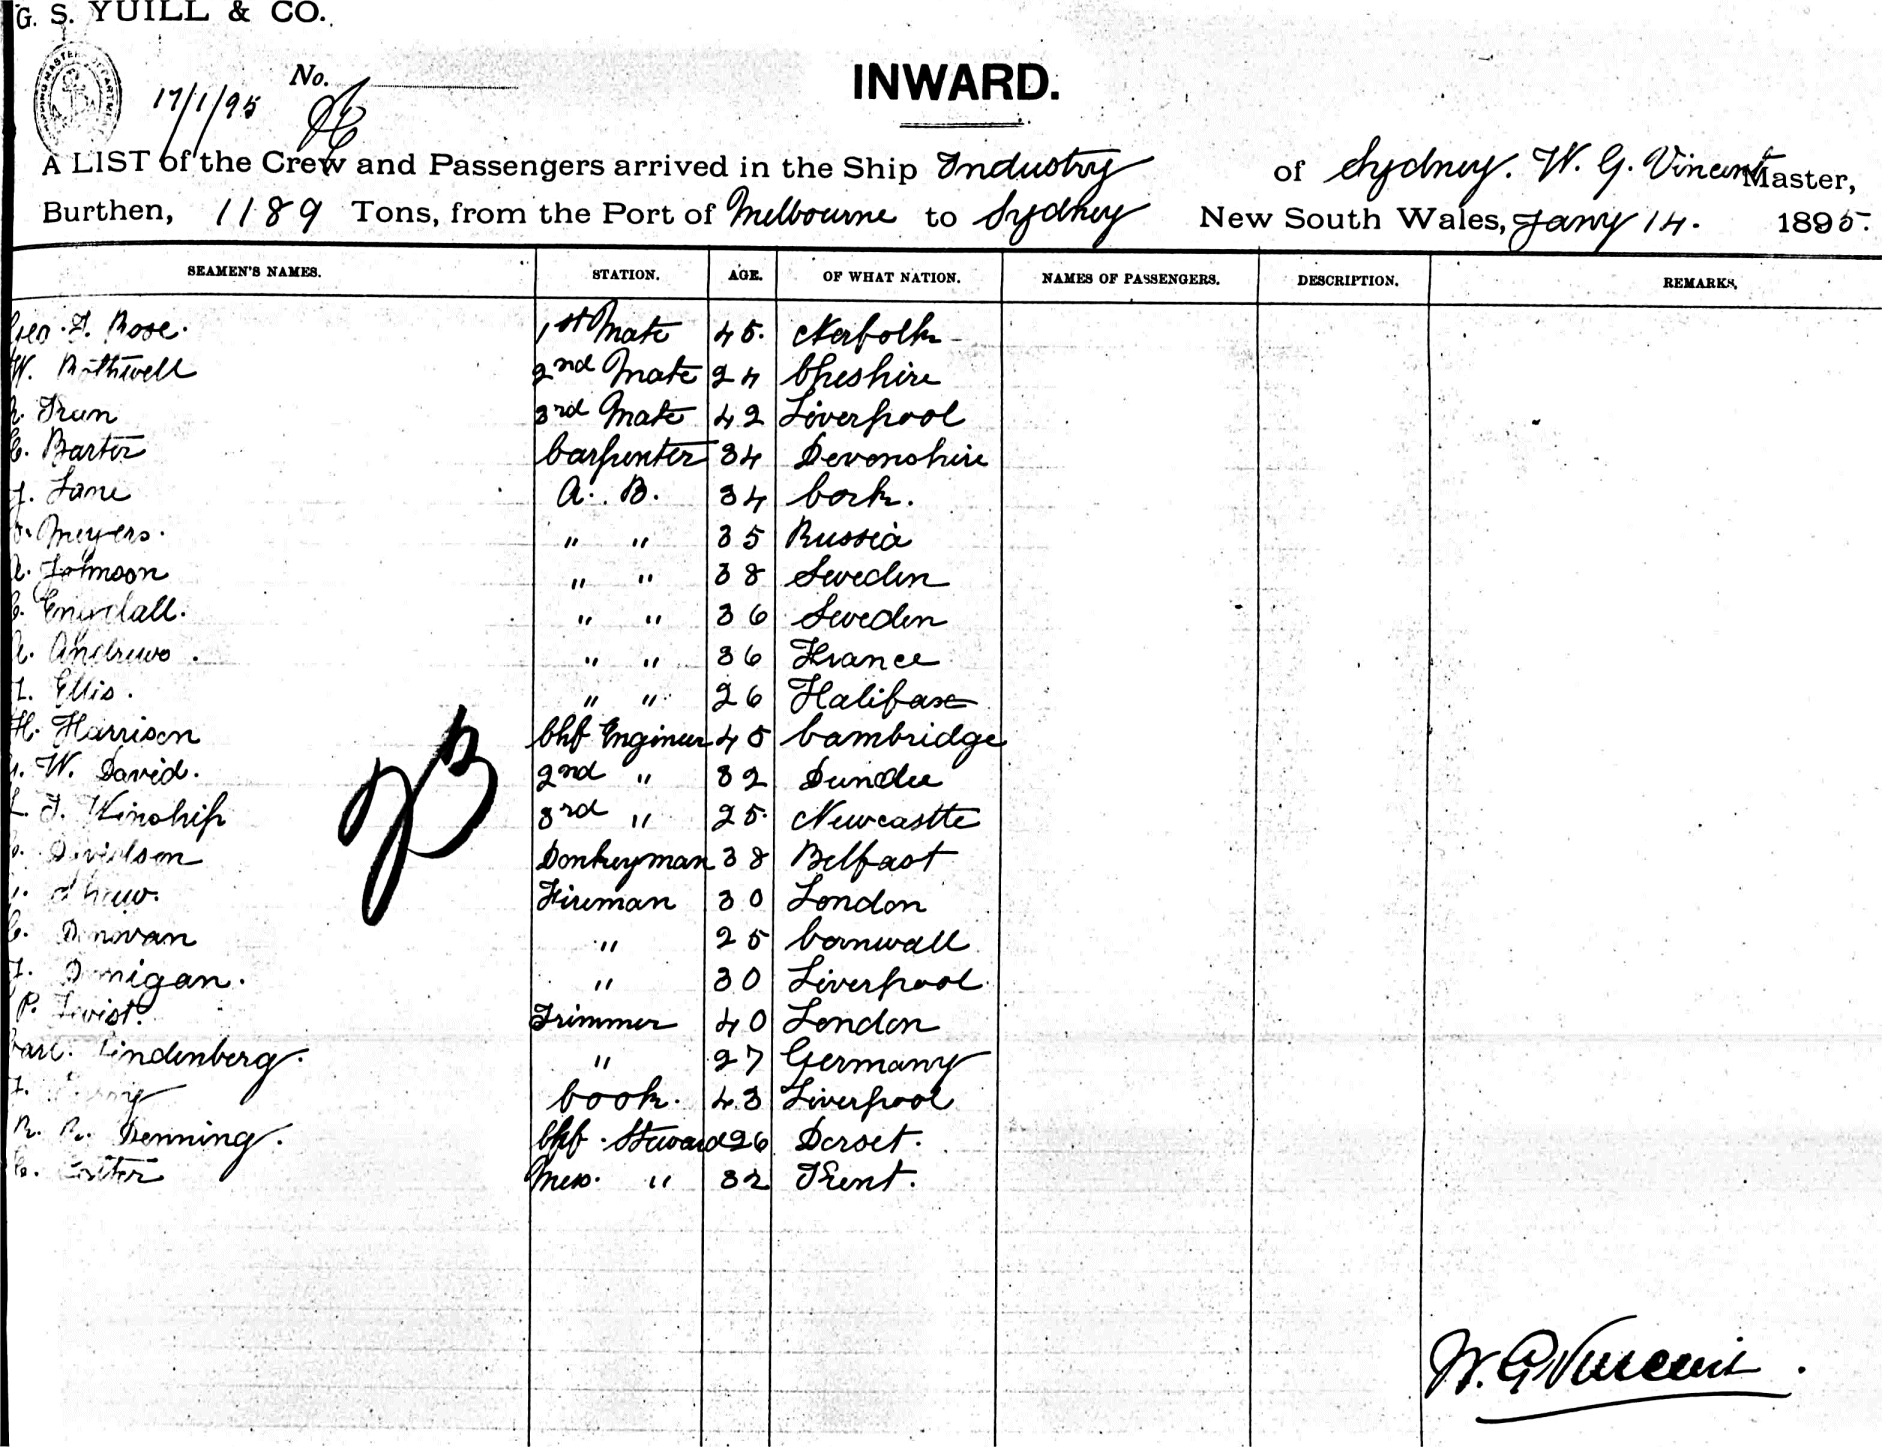 G. S. YUILL & CO.
No.
17/1/95
INWARD.
A LIST of the Crew and Passengers arrived in the Ship Industry of Sydney. W. G. Vincent Master,
Burthen, 1189 Tons, from the Port of Melbourne to Sydney New South Wales, Jany 14. 1895.
SEAMEN'S NAMES. STATION. AGE. OF WHAT NATION. NAMES OF PASSENGERS. DESCRIPTION. REMARKS.
Geo. F. Rose. 1st Mate 45. Norfolk
W. Bothwell 2nd Mate 24 Cheshire
Trun 3rd Mate 42 Liverpool
C. Barter Carpenter 34 Devonshire
J. Lane A. B. 34 Cork.
Meyers. " " 35 Russia
A. Johnson " " 38 Sweden
C. " " 36 Sweden
A. Andrews. " " 36 France
Ellis. " " 26 Halifax
H. Harrison Chf Engineer 45 Cambridge
W. David. 2nd " 32 Dundee
Winship 3rd " 25. Newcastle
Davidson Donkeyman 38 Belfast
Shaw. Fireman 30 London
C. Donovan " 25 Cornwall
Dunigan. " 30 Liverpool
P. Twist. Trimmer 40 London
Carl. Lindenberg. " 27 Germany
Cook. 43 Liverpool
R. R. Denning. Chf. Steward 26 Dorset.
C. Mess. " 32 Kent.
W. G. Vincent.